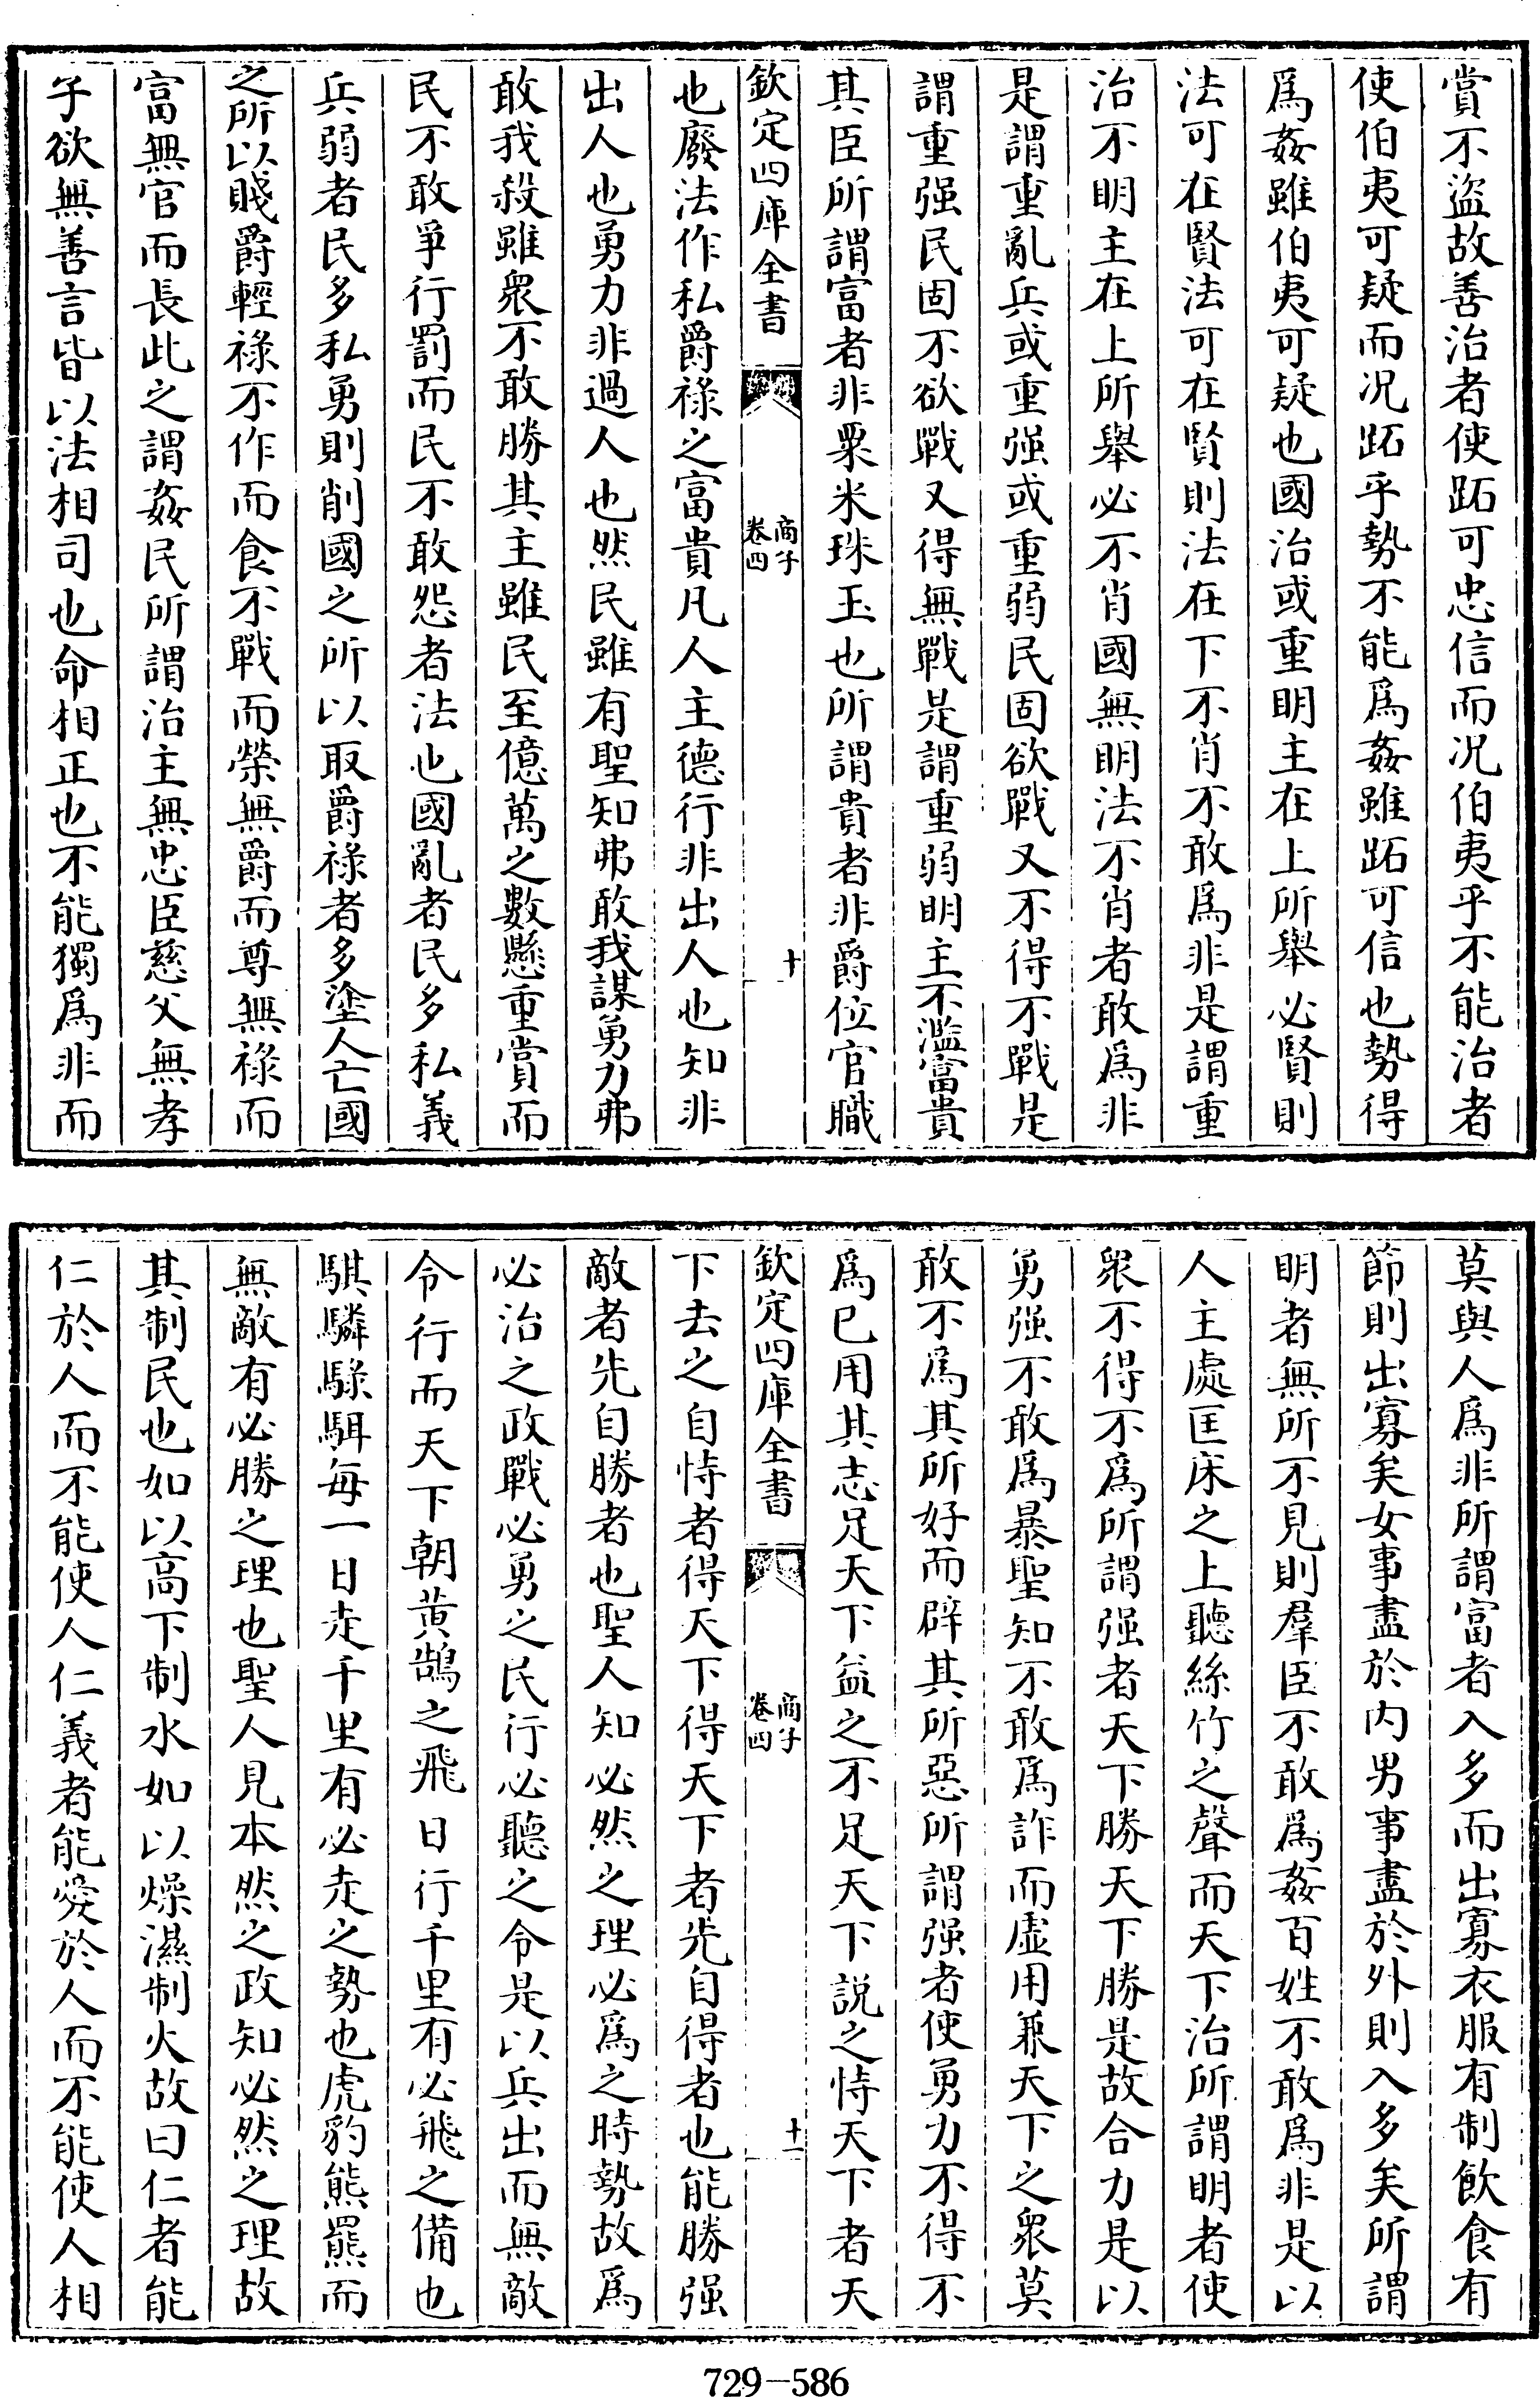 賞不盜故善治者使跖可忠信而况伯夷乎不能治者
使伯夷可疑而况跖乎勢不能爲姦雖跖可信也勢得
爲姦雖伯夷可疑也國治或重明主在上所舉必賢則
法可在賢法可在賢則法在下不肖不敢爲非是謂重
治不明主在上所舉必不肖國無明法不肖者敢爲非
是謂重亂兵或重强或重弱民固欲戰又不得不戰是
謂重强民固不欲戰又得無戰是謂重弱明主不濫富貴
其臣所謂富者非粟米珠玉也所謂貴者非爵位官職
欽定四庫全書
商子
卷四
十
也廢法作私爵祿之富貴凡人主德行非出人也知非
出人也勇力非過人也然民雖有聖知弗敢我謀勇力弗
敢我殺雖衆不敢勝其主雖民至億萬之數懸重賞而
民不敢爭行罰而民不敢怨者法也國亂者民多私義
兵弱者民多私勇則削國之所以取爵祿者多塗人亡國
之所以賤爵輕祿不作而食不戰而榮無爵而尊無祿而
富無官而長此之謂姦民所謂治主無忠臣慈父無孝
子欲無善言皆以法相司也命相正也不能獨爲非而
莫與人爲非所謂富者入多而出寡衣服有制飲食有
節則出寡矣女事盡於内男事盡於外則入多矣所謂
明者無所不見則羣臣不敢爲姦百姓不敢爲非是以
人主處匡床之上聽絲竹之聲而天下治所謂明者使
衆不得不爲所謂强者天下勝天下勝是故合力是以
勇强不敢爲暴聖知不敢爲詐而虚用兼天下之衆莫
敢不爲其所好而辟其所惡所謂强者使勇力不得不
爲已用其志足天下益之不足天下說之恃天下者天
欽定四庫全書
商子
卷四
十一
下去之自恃者得天下得天下者先自得者也能勝强
敵者先自勝者也聖人知必然之理必爲之時勢故爲
必治之政戰必勇之民行必聽之令是以兵出而無敵
令行而天下朝黄鵠之飛日行千里有必飛之備也
騏驎騄駬每一日走千里有必走之勢也虎豹熊羆而
無敵有必勝之理也聖人見本然之政知必然之理故
其制民也如以高下制水如以燥濕制火故曰仁者能
仁於人而不能使人仁義者能愛於人而不能使人相
729-586